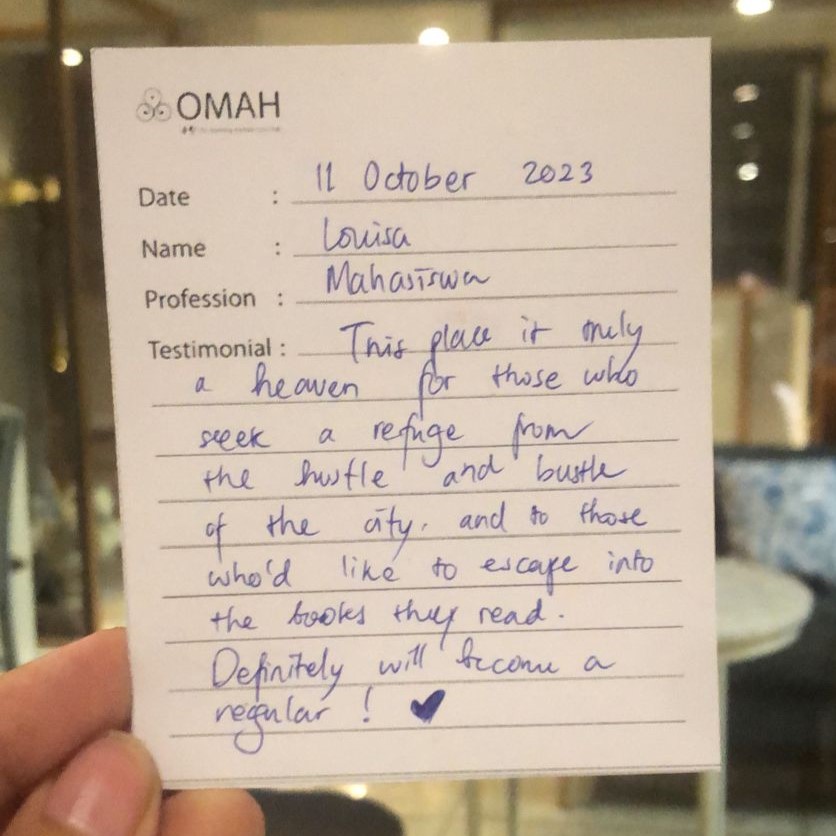 OMAH
Date : 11 October 2023
Name : Louisa
Profession : Mahasiswa
Testimonial : This place is truly
a heaven for those who
seek a refuge from
the hustle and bustle
of the city, and to those
who'd like to escape into
the books they read.
Definitely will become a
regular ! ♥